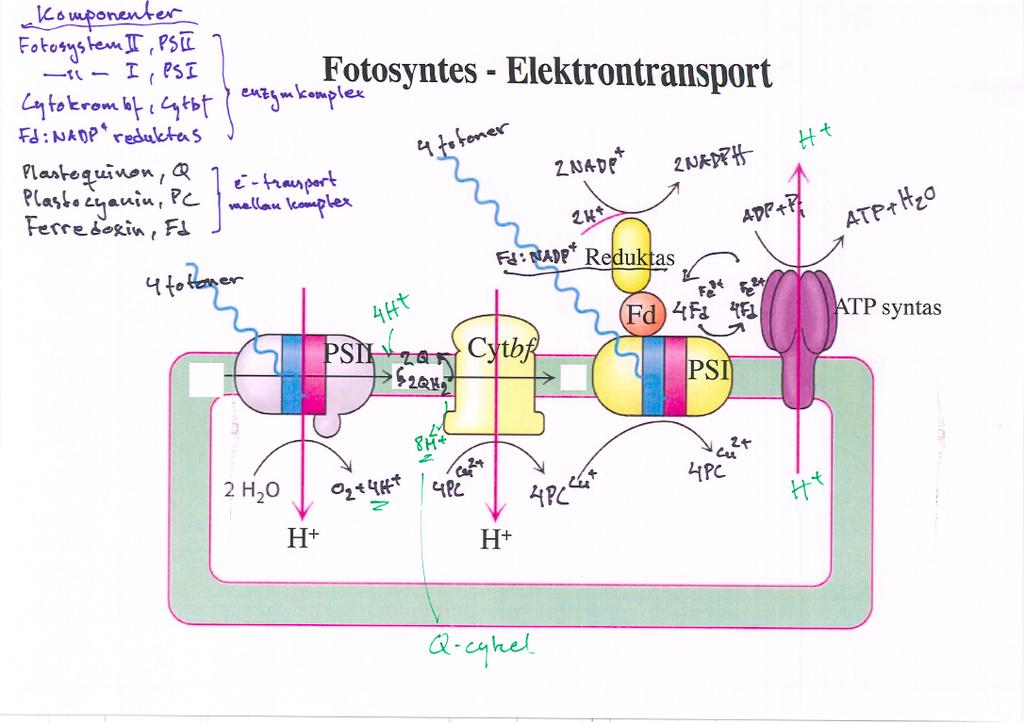 Komponenter
Fotosystem II, PSII
—"— I, PSI
Cytokrom bf, Cytbf
Fd:NADP⁺ reduktas
enzymkomplex
Plastoquinon, Q
Plastocyanin, PC
Ferredoxin, Fd
e⁻-transport
mellan komplex
Fotosyntes - Elektrontransport
4 fotoner
2NADP⁺
2NADPH
2H⁺
Fd:NADP⁺ Reduktas
H⁺
ADP+Pi
ATP+H₂O
4 fotoner
4H⁺
Fd
Fe³⁺
4Fd
Fe²⁺
4Fd
ATP syntas
PSII
2Q
2QH₂
Cytbf
PSI
8H⁺
2 H₂O
O₂+4H⁺
4PC Cu²⁺
4PC Cu⁺
4PC Cu²⁺
H⁺
H⁺
H⁺
Q-cykel